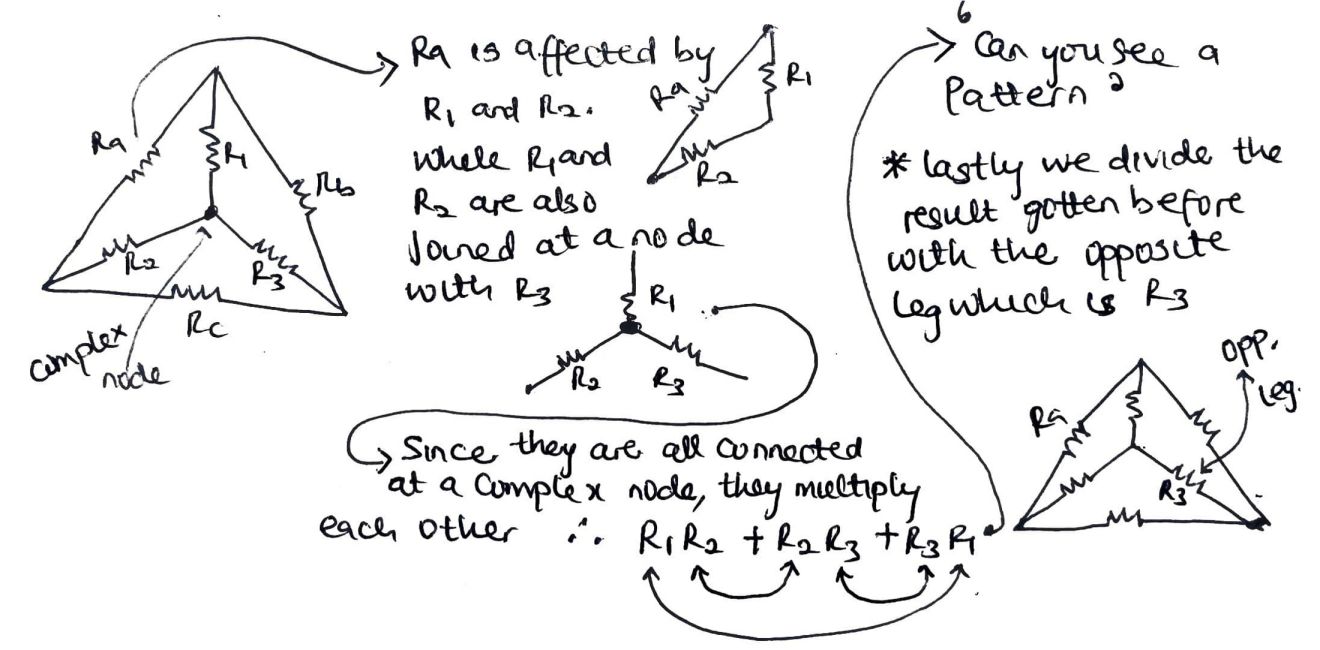 Ra
R1
Rb
R2
R3
Rc
complex
node
Ra is affected by
R1 and R2.
where R1 and
R2 are also
Joined at a node
with R3
Ra
R1
R2
R1
R2
R3
Since they are all connected
at a complex node, they multiply
each other ∴ R1R2 + R2R3 + R3R1
6
Can you see a
Pattern?
* lastly we divide the
result gotten before
with the opposite
leg which is R3
Ra
R3
opp.
leg.